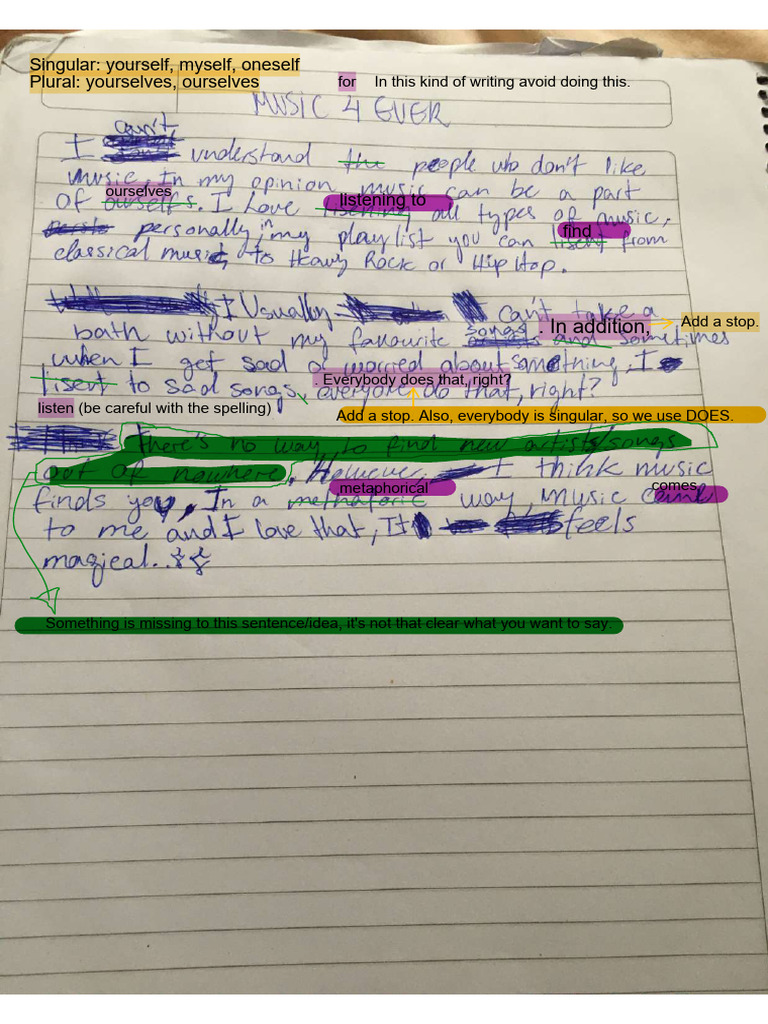 Singular: yourself, myself, oneself
Plural: yourselves, ourselves
for In this kind of writing avoid doing this.
MUSIC 4 EVER
can't
I understand the people who don't like
music, In my opinion music can be a part
ourselves
of ourselfs. I Love listening to all types of music,
personally in my playlist you can find lisent from
classical music, to Heavy Rock or Hip Hop.
I Usually can't take a
bath without my favourite songs . In addition, and sometimes
Add a stop.
when I get sad o worried about something, I
lisent to sad songs, everyone do that, right?
. Everybody does that, right?
listen (be careful with the spelling)
Add a stop. Also, everybody is singular, so we use DOES.
there's no way to find new artists/songs
out of nowhere, However, I think music
finds you, In a metaphorical way, music comes
to me and I love that, It feels
magical..
Something is missing to this sentence/idea, it's not that clear what you want to say.